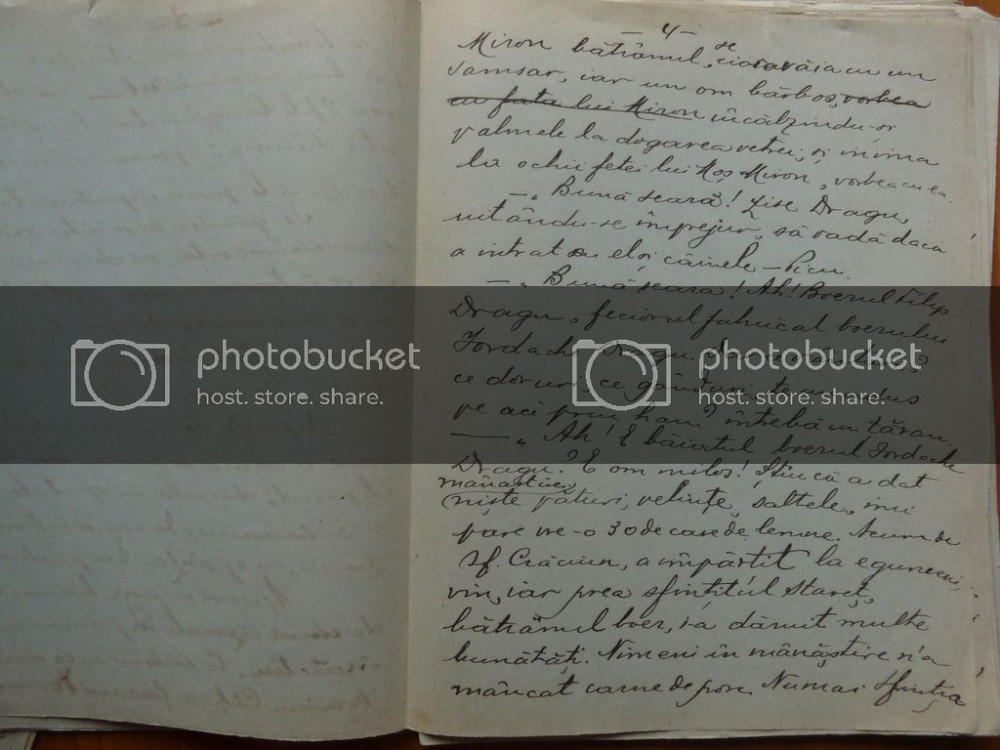 – 4 –
Miron bătrânul, se ciorovăia cu un
samsar, iar un om bărbos, vorbea
cu fata lui Miron încălzindu-și
palmele la dogoarea vetrei, și inima
la ochii fetei lui Moș Miron, vorbea cu ea.
– „Bună seara! zise Dragu,
uitându-se împrejur, să vadă dacă
a intrat și câinele – Picu.
– „Bună seara! Ah! Boerul Filip
Dragu, feciorul boerului
Iordache Dragu
ce doruri, ce gânduri te-au adus
pe aci prin han? întrebă un țăran.
– „Ah! E băiatul boerul Iordache
Dragu? E om milos! Știu că a dat
mânăstirei
niște pături, velințe, saltele, îmi
pare vre-o 30 de care de lemne. Acum de
Sf. Crăciun, a împărțit la egumeni,
vin, iar prea sfințitul Stareț,
bătrânul boer, i-a dăruit multe
bunătăți. Nimeni în mânăstire n'a
mâncat carne de porc. Numai Sfinția
photobucket
host. store. share.
photobucket
host. store. share.